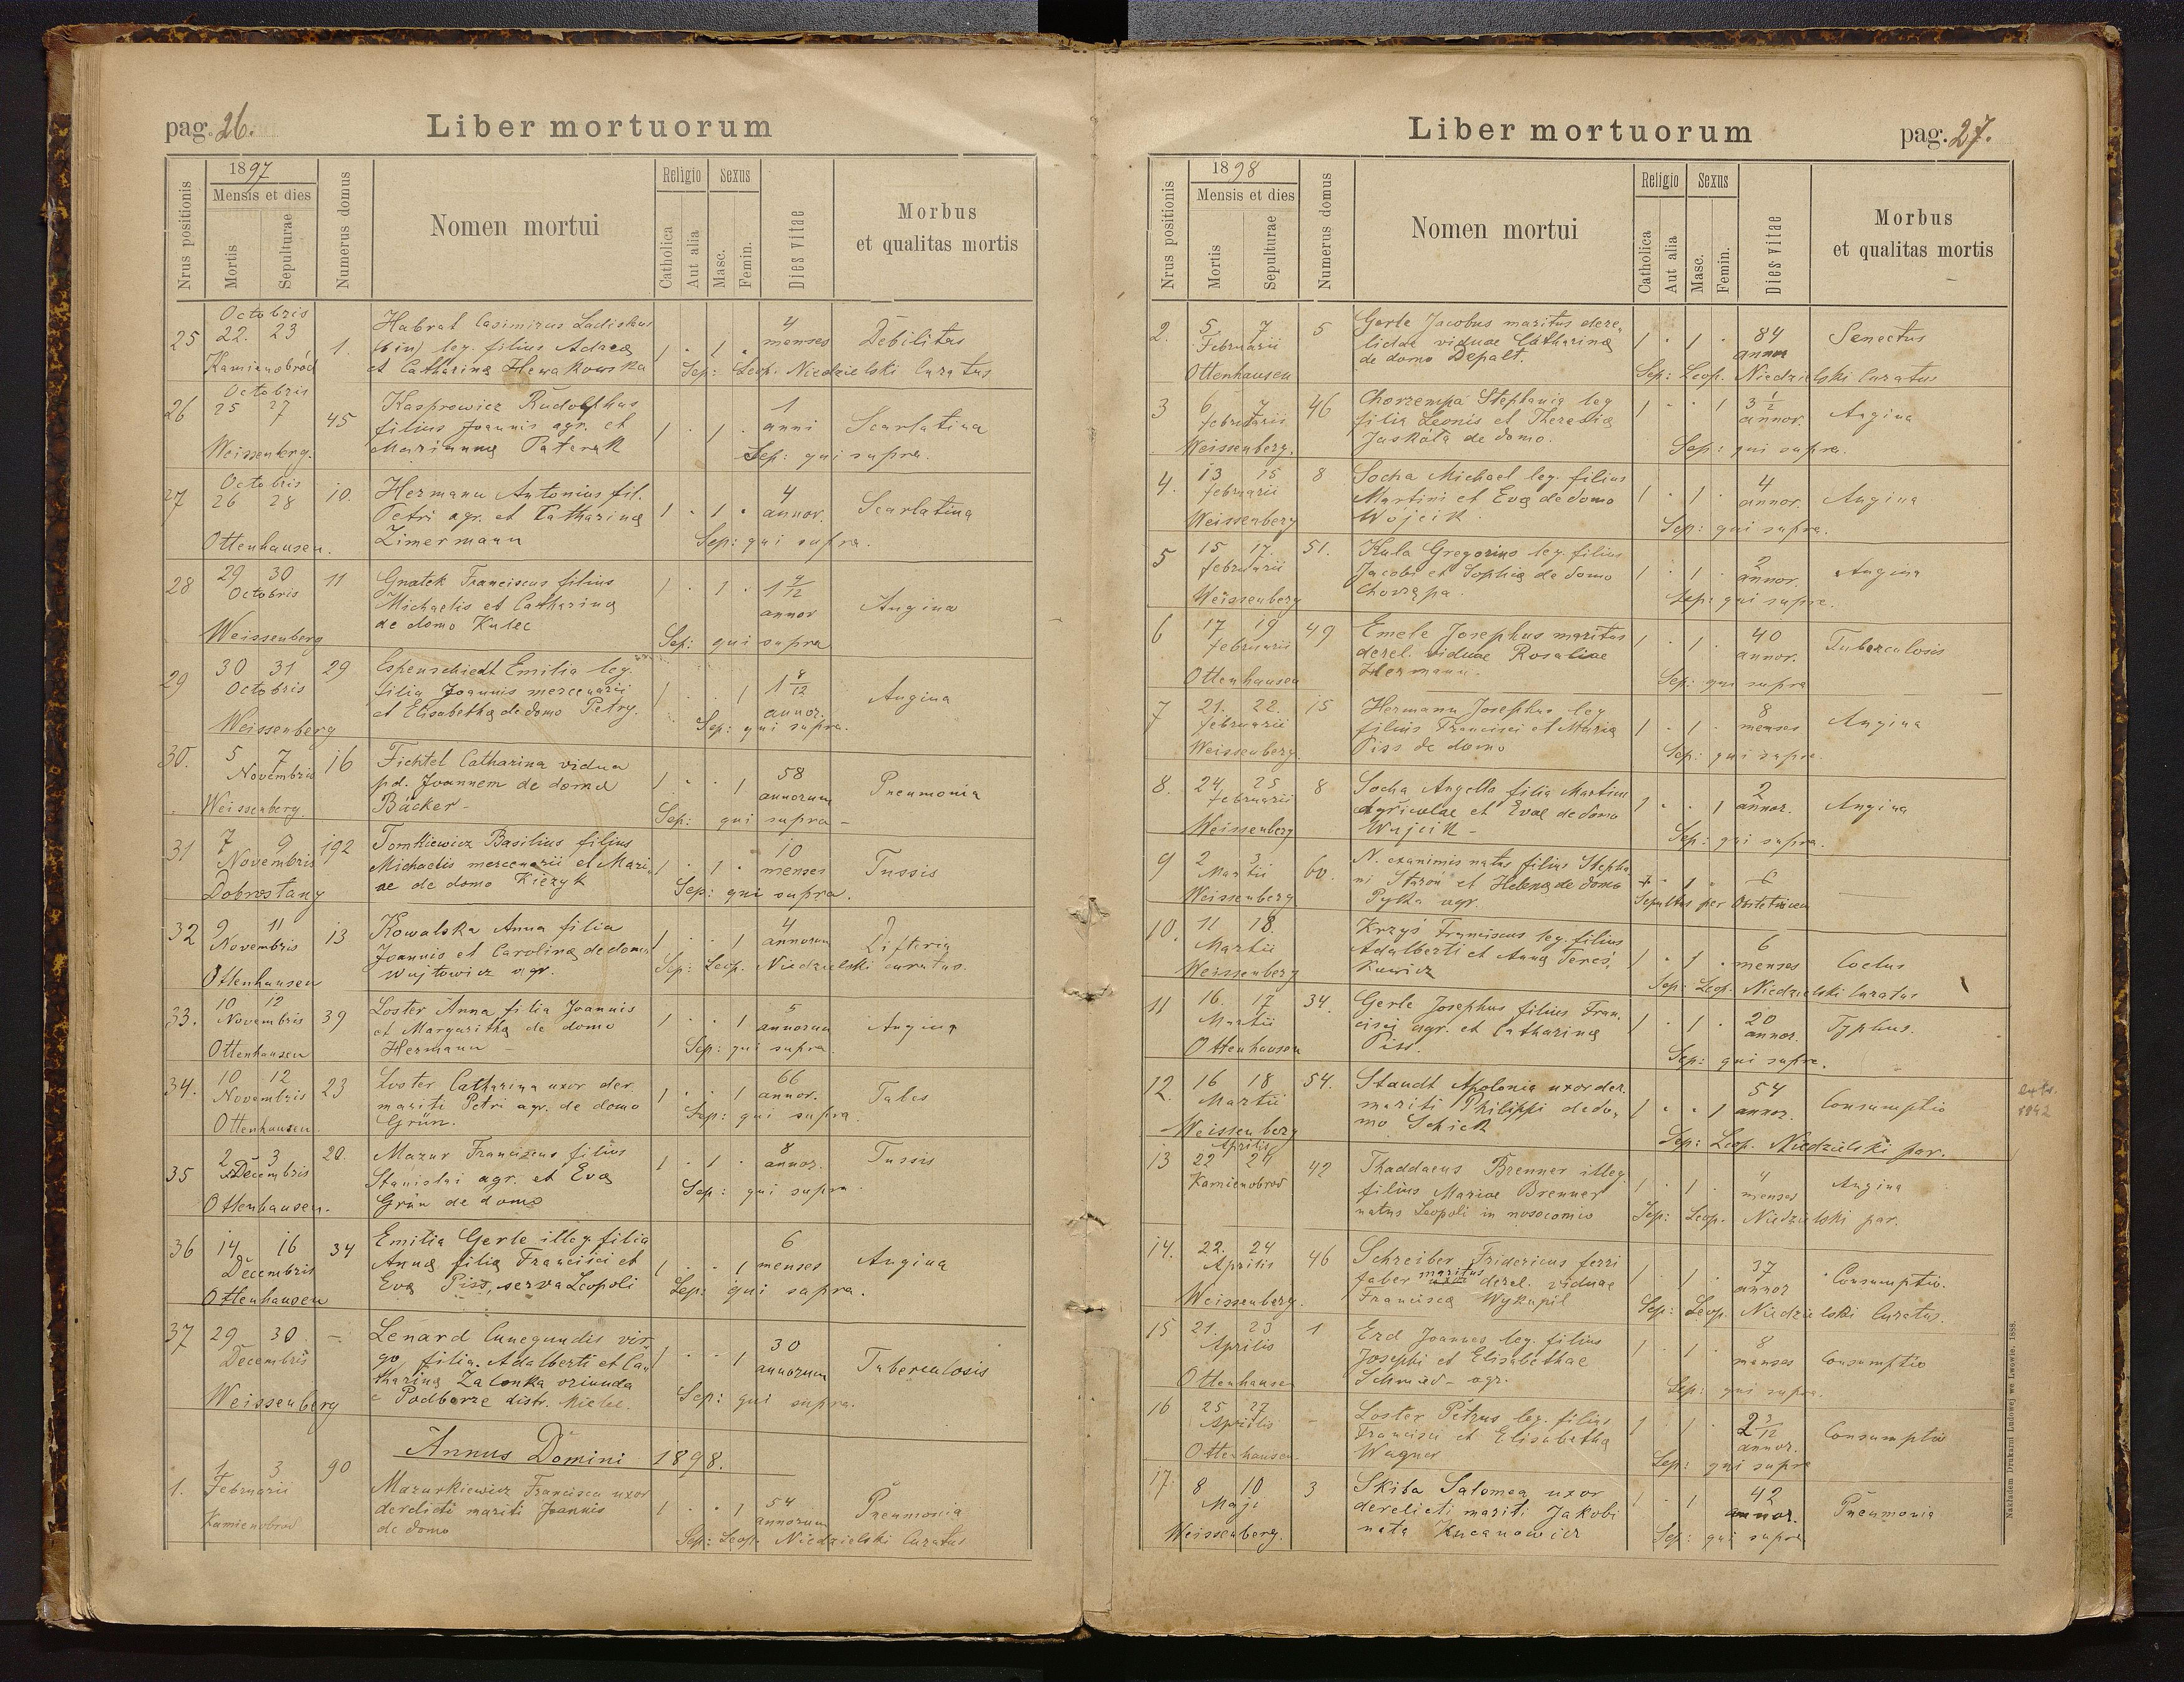 pag. 26.
Liber mortuorum
Nrus positionis
1897
Mensis et dies
Mortis
Sepulturae
Numerus domus
Nomen mortui
Religio
Catholica
Aut alia
Sexus
Masc.
Femin.
Dies vitae
Morbus
et qualitas mortis
Octobris
25 22. 23 1. Habrat Casimirus Ladislaus 4
leg. filius 1 . 1 . menses Debilitas
Kamienobród et Catharina
Sep: Leop. Niedzielski Curatus
Octobris
26 25 27 45 Kasprowicz Rudolphus 1
filius Joannis agr. et 1 . 1 . anni Scarlatina
Weissenberg. Marianna Paterak
Sep: qui supra.
Octobris
27 26 28 10. Hermann Antonius fil. 4
Petri agr. et Catharina 1 . 1 . annor. Scarlatina
Ottenhausen. Zimermann
Sep: qui supra.
28 29 30 11 Gnatek Franciscus filius 1 . 1 . 1 9/12
Octobris Michaelis et Catharina annor Angina
Weissenberg de domo Kulec
Sep: qui supra
29 30 31 29 Espenschiedt Emilia leg.
Octobris filia Joannis mercenarii 1 . . 1 1 8/12 Angina
Weissenberg et Elisabetha de domo Petry. annor.
Sep: qui supra.
30. 5 7 16 Fichtel Catharina vidua 58
Novembris pd. Joannem de domo 1 . . 1 annorum Pneumonia
Weissenberg. Bäcker -
Sep: qui supra -
31 7 9 192 Tomkiewicz Basilius filius 10
Novembris Michaelis mercenarii et Mari- 1 . 1 . menses Tussis
Dobrostany ae de domo Kiezyk
Sep: qui supra.
32 9 11 13 Kowalska Anna filia 4
Novembris Joannis et Carolina de domo 1 . . 1 annorum Difteria
Ottenhausen Wujtowicz agr.
Sep: Leop. Niedzielski curatus.
33. 10 12 39 Loster Anna filia Joannis 5
Novembris et Margaritha de domo 1 . . 1 annorum Angina
Ottenhausen Hermann
Sep: qui supra.
34. 10 12 23 Loster Catharina uxor der. 66
Novembris mariti Petri agr. de domo 1 . . 1 annor. Tabes
Ottenhausen Grün.
Sep: qui supra
35 2 3 20. Mazur Franciscus filius 8
Decembris Stanislai agr. et Eva 1 . 1 . annor. Tussis
Ottenhausen. Grün de domo
Sep: qui supra
36 14 16 34 Emilia Gerle illeg. filia 6
Decembris Anna filia Francisci et 1 . . 1 menses Angina
Ottenhausen Eva Piss, serva Leopoli
Sep: qui supra.
37 29 30 - Lenard Cunegundis vir-
Decembris go, filia Adalberti et Ca- 1 . . 1 30 annorum Tuberculosis
tharina Zalonka oriunda
Weissenberg e Podborze distr. Mielec.
Sep: qui supra.
Annus Domini 1898.
1. 1 3 90 Mazurkiewicz Francisca uxor 54
Februarii derelicti mariti Joannis 1 . . 1 annorum Pneumonia
Kamienobrod de domo
Sep: Leop. Niedzielski Curatus
Liber mortuorum
pag. 27.
Nrus positionis
1898
Mensis et dies
Mortis
Sepulturae
Numerus domus
Nomen mortui
Religio
Catholica
Aut alia
Sexus
Masc.
Femin.
Dies vitae
Morbus
et qualitas mortis
2. 5. 7 5 Gerle Jacobus maritus dere- 84
Februarii lictae viduae Catharina 1 . 1 . annor Senectus
Ottenhausen de domo Depalt.
Sep: Leop. Niedzielski Curatus
3 6 7 46 Chorzempa Stephania leg 3 1/2
februarii filia Leonis et Theresia 1 . . 1 annor. Angina
Weissenberg. Jaskóła de domo.
Sep: qui supra.
4. 13 15 8 Socha Michael leg. filius 4
februarii Martini et Eva de domo 1 . 1 . annor. Angina
Weissenberg Wójcik
Sep: qui supra.
5 15 17. 51. Kula Gregorius leg. filius 2
februarii Jacobi et Sophia de domo 1 . 1 . annor. Angina
Weissenberg Chorzępa.
Sep: qui supra.
6 17 19 49 Emele Josephus maritus 40
februarii derel. viduae Rosaliae 1 . 1 . annor. Tuberculosis
Ottenhausen Hermann.
Sep: qui supra
7 21. 22. 15 Hermann Josephus leg 8
februarii filius Francisci et Maria 1 . 1 . menses Angina
Weissenberg. Piss de domo
Sep: qui supra.
8. 24 25 8 Socha Angella filia Martini 2
februarii agricolae et Evae de domo 1 . . 1 annor. Angina
Weissenberg Wujcik -
Sep: qui supra.
9 2 3 60. N. exanimis natus filius Stepha-
Martii ni Sturoń et Helena de domo
Weissenberg Pytka agr.
Sepultus per Obstetricem
10. 11 18. Krzyś Franciscus leg. filius 6
Martii Adalberti et Anna Tereś- 1 . 1 . menses Coctus
Weissenberg kiewicz
Sep: Leop. Niedzielski Curatus
11 16. 17 34. Gerle Josephus filius Fran- 20
Martii cisci agr. et Catharina 1 . 1 . annor. Typhus.
Ottenhausen Piss.
Sep: qui supra.
12. 16 18 54. Staudt Apolonia uxor der. 54
Martii mariti Philippi de do- 1 . . 1 annor. Consumptio
Weissenberg mo Schick
Sep: Leop. Niedzielski par.
1942
Aprilis
13 22 24 42 Thaddaeus Brenner illeg. 4
Kamienobrod filius Mariae Brenner 1 . 1 . menses Angina
natus Leopoli in nosocomio
Sep: Leop. Niedzielski par.
14. 22. 24 46 Schreiber Fridericus ferri
Aprilis faber maritus derel. viduae 1 . 1 . 37 annor Consumptio.
Weissenberg. Francisca Wykupil
Sep: Leop. Niedzielski Curatus.
15 21. 23 1 Erd Joannes leg. filius 8
Aprilis Josephi et Elisabethae 1 . 1 . menses Consumptio
Ottenhausen Schmied - agr.
Sep: qui supra.
16 25 27 - Loster Petrus leg. filius 2 3/12
Aprilis Francisci et Elisabetha 1 1 . annor. Consumptio
Ottenhausen Wagner
Sep: qui supra
17. 8 10 3 Skiba Salomea uxor 42
Maji derelicti mariti Jakobi 1 . 1 annor. Pneumonia
Weissenberg. nata Kucanowicz
Sep: qui supra
Nakładem Drukarni Ludowej we Lwowie. 1888.